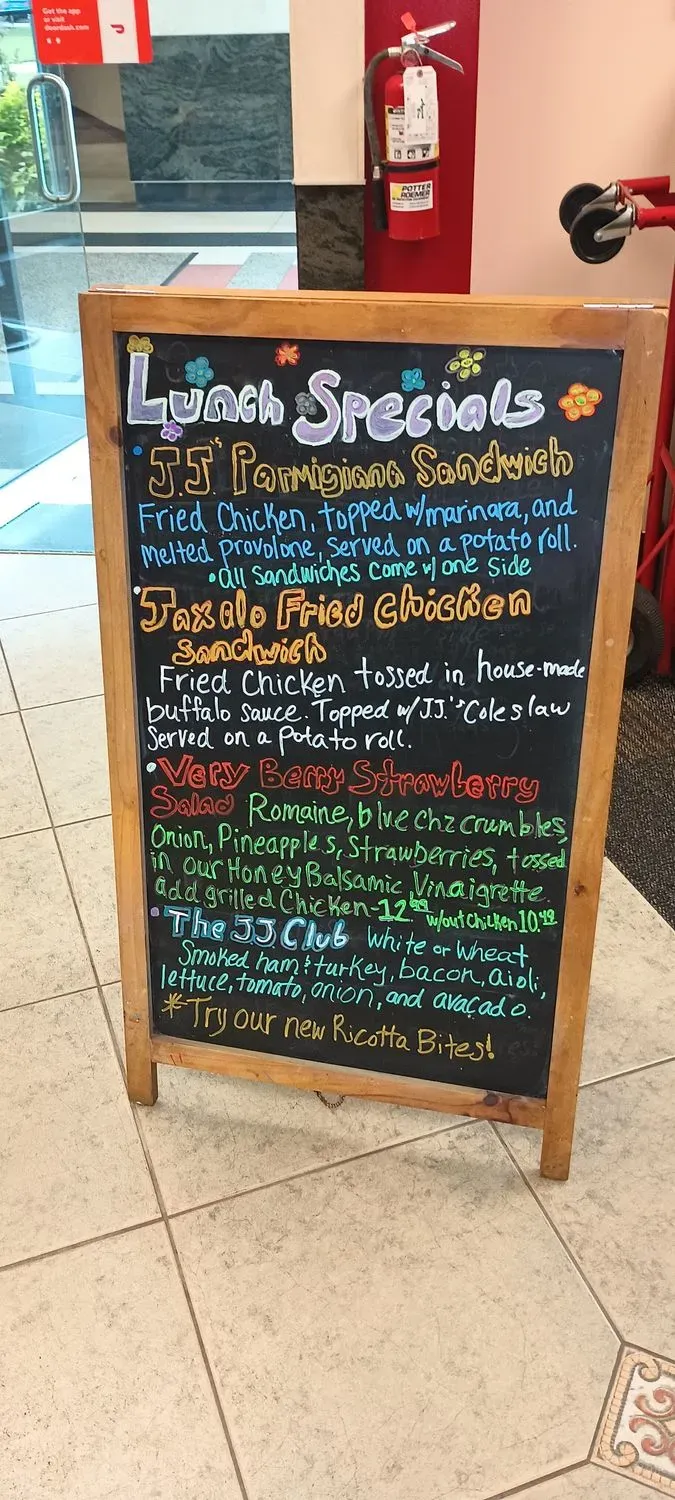 Get the app
or visit
doordash.com
POTTER
ROEMER
Lunch Specials
J.J.'s Parmigiana Sandwich
Fried Chicken, topped w/marinara, and
melted provolone, served on a potato roll.
•all sandwiches come w/ one side
Jaxalo Fried Chicken
Sandwich
Fried Chicken tossed in house-made
buffalo sauce. Topped w/J.J.'s Coleslaw
Served on a potato roll.
Very Berry Strawberry
Salad Romaine, blue chz crumbles,
Onion, Pineapples, Strawberries, tossed
in our Honey Balsamic Vinaigrette.
add grilled Chicken-12.99 w/out chicken 10.49
The JJ Club White or Wheat
Smoked ham & turkey, bacon, aioli,
lettuce, tomato, onion, and avacado.
*Try our new Ricotta Bites!